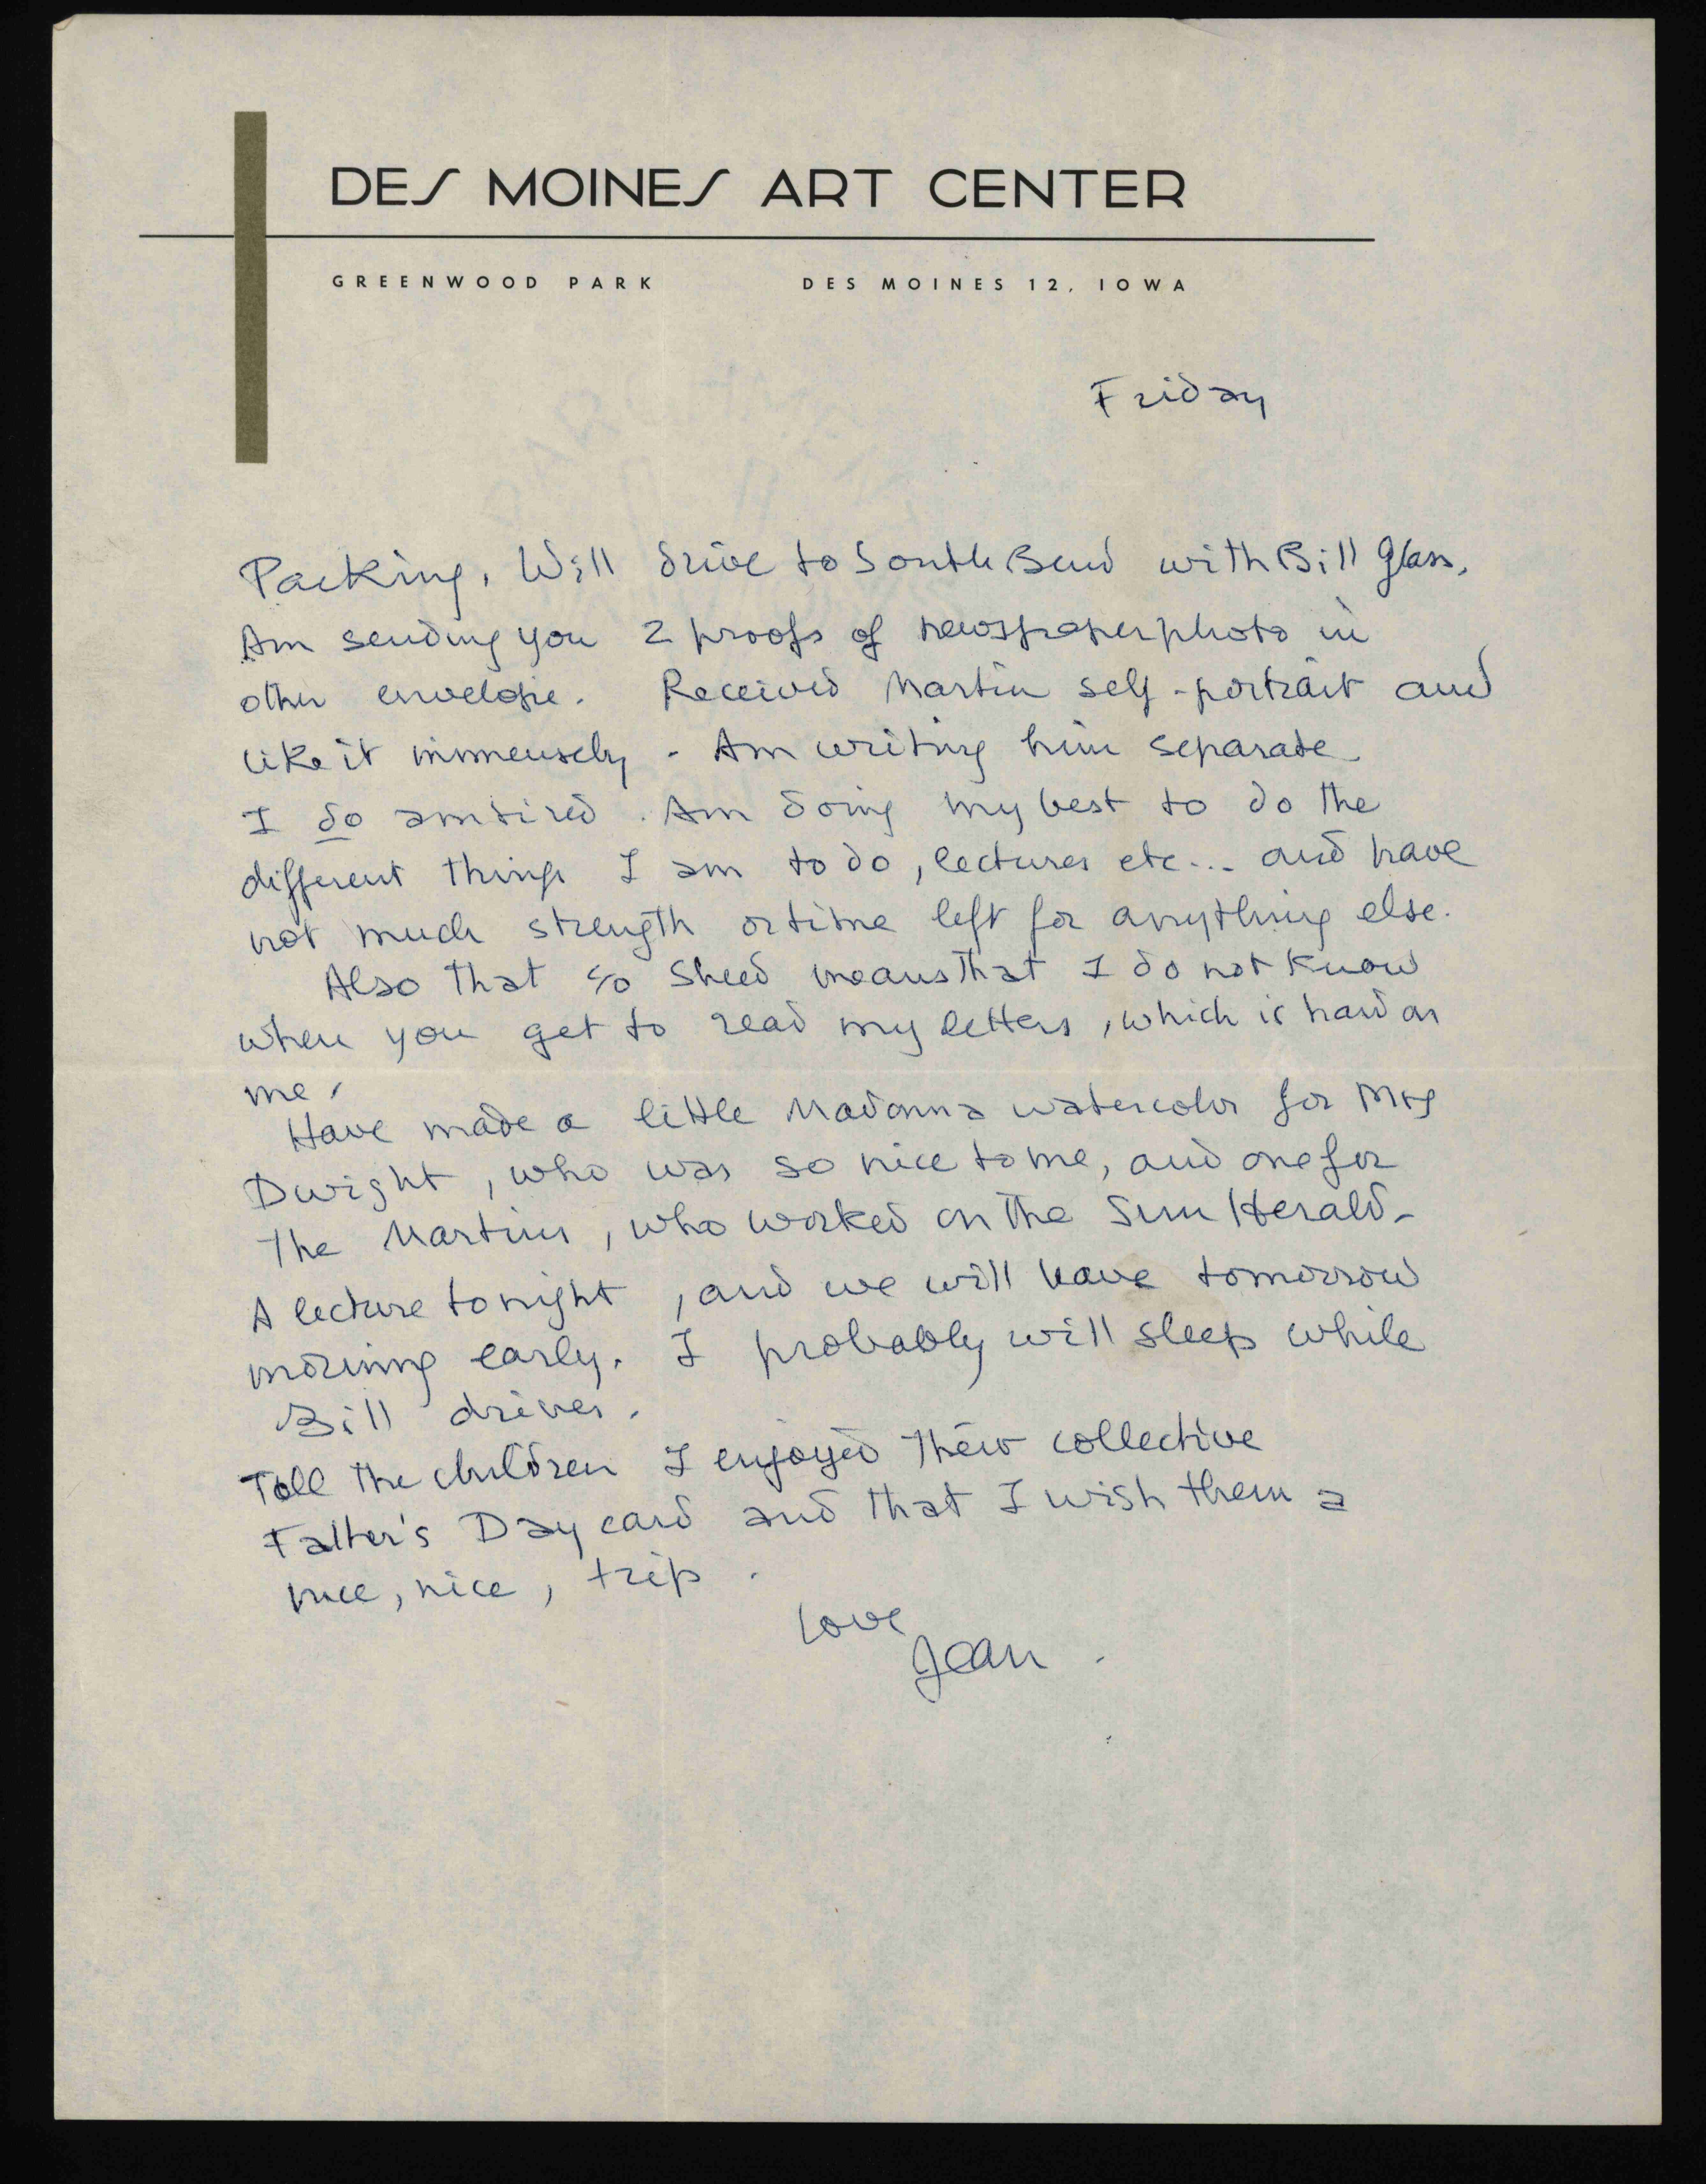 DES MOINES ART CENTER
GREENWOOD PARK DES MOINES 12, IOWA
Friday
Packing, Will drive to South Bend with Bill Glass.
Am sending you 2 proofs of newspaperphoto in
other envelope. Received Martin self-portrait and
like it immensely - Am writing him separate.
I do am tired. Am doing my best to do the
different things I am to do, lectures etc... and have
not much strength or time left for anything else.
Also that c/o Sheed means that I do not know
when you get to read my letters, which is hard on
me.
Have made a little Madonna watercolor for Mrs
Dwight, who was so nice to me, and one for
The Martins, who worked on the Sun Herald-
A lecture tonight, and we will leave tomorrow
morning early. I probably will sleep while
Bill drives.
Tell the children I enjoyed their collective
Father's Day card and that I wish them a
nice, nice, trip.
Love
Jean.